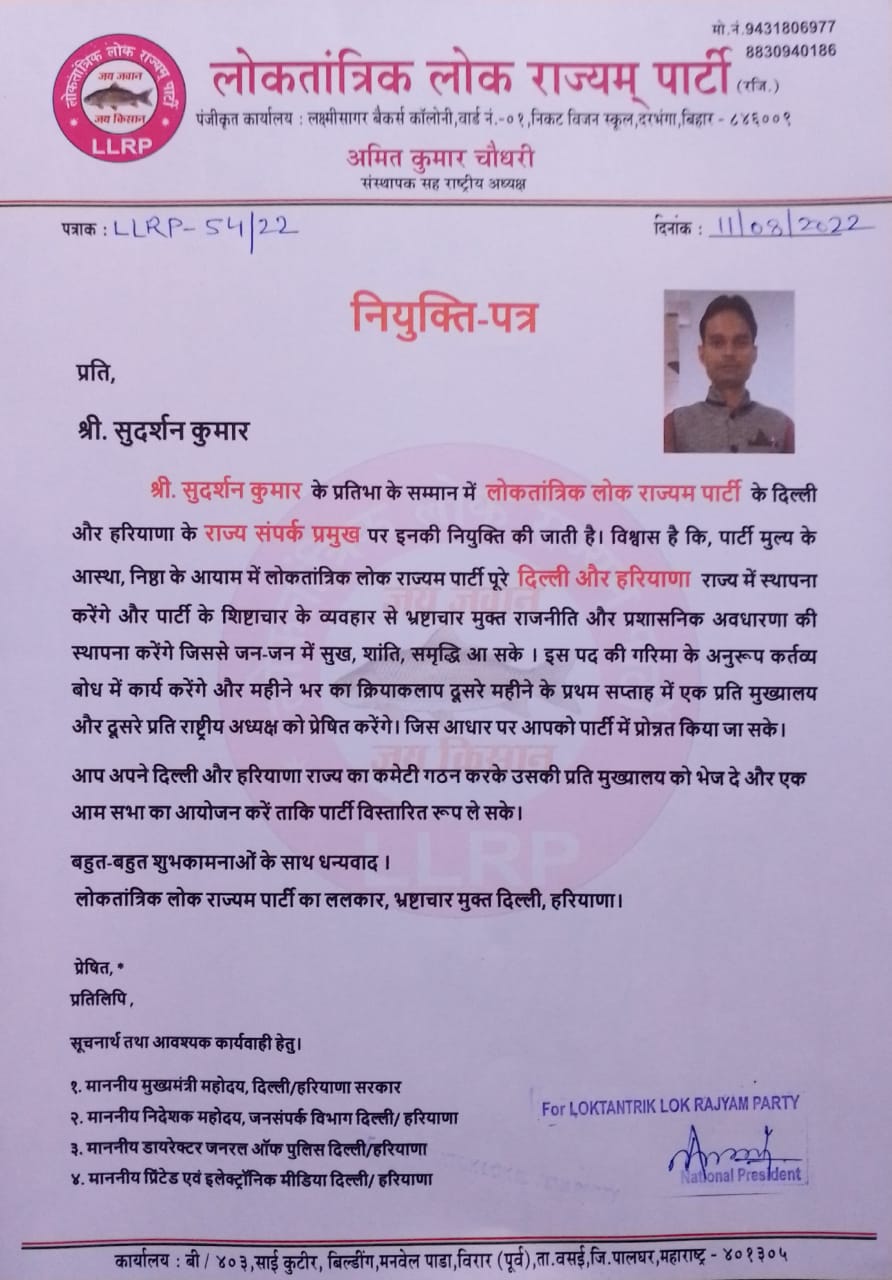 मो.नं.9431806977
8830940186
लोकतांत्रिक लोक राज्यम् पार्टी
जय जवान
जय किसान
LLRP
लोकतांत्रिक लोक राज्यम् पार्टी (रजि.)
पंजीकृत कार्यालय : लक्ष्मीसागर बैकर्स कॉलोनी,वार्ड नं.-०१,निकट विजन स्कूल,दरभंगा,बिहार - ८४६००९
अमित कुमार चौधरी
संस्थापक सह राष्ट्रीय अध्यक्ष
पत्राक : LLRP- 54/22
दिनांक : 11/08/2022
नियुक्ति-पत्र
प्रति,
श्री. सुदर्शन कुमार
श्री. सुदर्शन कुमार के प्रतिभा के सम्मान में लोकतांत्रिक लोक राज्यम पार्टी के दिल्ली
और हरियाणा के राज्य संपर्क प्रमुख पर इनकी नियुक्ति की जाती है। विश्वास है कि, पार्टी मुल्य के
आस्था, निष्ठा के आयाम में लोकतांत्रिक लोक राज्यम पार्टी पूरे दिल्ली और हरियाणा राज्य में स्थापना
करेंगे और पार्टी के शिष्टाचार के व्यवहार से भ्रष्टाचार मुक्त राजनीति और प्रशासनिक अवधारणा की
स्थापना करेंगे जिससे जन-जन में सुख, शांति, समृद्धि आ सके । इस पद की गरिमा के अनुरूप कर्तव्य
बोध में कार्य करेंगे और महीने भर का क्रियाकलाप दूसरे महीने के प्रथम सप्ताह में एक प्रति मुख्यालय
और दूसरे प्रति राष्ट्रीय अध्यक्ष को प्रेषित करेंगे। जिस आधार पर आपको पार्टी में प्रोन्नत किया जा सके।
आप अपने दिल्ली और हरियाणा राज्य का कमेटी गठन करके उसकी प्रति मुख्यालय को भेज दे और एक
आम सभा का आयोजन करें ताकि पार्टी विस्तारित रूप ले सके।
बहुत-बहुत शुभकामनाओं के साथ धन्यवाद ।
लोकतांत्रिक लोक राज्यम पार्टी का ललकार, भ्रष्टाचार मुक्त दिल्ली, हरियाणा।
प्रेषित, *
प्रतिलिपि ,
सूचनार्थ तथा आवश्यक कार्यवाही हेतु।
१. माननीय मुख्यमंत्री महोदय, दिल्ली/हरियाणा सरकार
२. माननीय निदेशक महोदय, जनसंपर्क विभाग दिल्ली/ हरियाणा
३. माननीय डायरेक्टर जनरल ऑफ पुलिस दिल्ली/हरियाणा
४. माननीय प्रिंटेड एवं इलेक्ट्रॉनिक मीडिया दिल्ली/ हरियाणा
For LOKTANTRIK LOK RAJYAM PARTY
National President
कार्यालय : बी / ४०३,साई कुटीर, बिल्डींग,मनवेल पाडा,विरार (पूर्व),ता.वसई,जि.पालघर,महाराष्ट्र - ४०१३०५